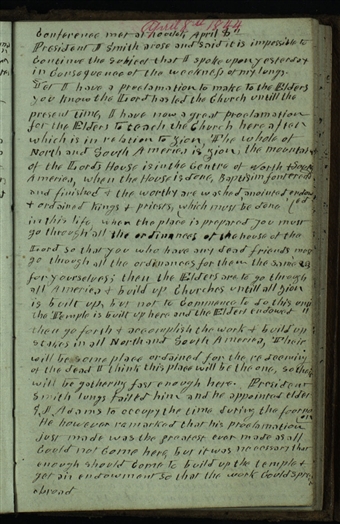 April 8th 1844
Conference met at noon April 8th
President J Smith arose and said it is impossible to
Continue the subject that I spoke upon yesterday
in Consequence of the weakness of my lungs.
Yet I have a proclamation to make to the Elders
you know the Lord has led the Church untill the
present time, I have now a great proclamation
for the Elders to teach the Church here after
which is in relation to Zion, The whole of
North and South America is Zion, the mountain
of the Lords House is in the Centre of North & South
America, when the House is done, Baptism font erected
and finished & the worthy are washed anointed endow
& ordained Kings & priests, which must be done
in this life, when the place is prepared you must
go through all the ordinances of the house of the
Lord so that you who have any dead friends must
go through all the ordinances for them the same as
for yourselves; then the Elders are to go through
all America & build up Churches untill all Zion
is built up, but not to Commence to do this until
the Temple is built up here and the Elders endowed
then go forth & accomplish the work & build up
stakes in all North and South America, Their
will be some place ordained for the redeeming
of the dead I think this place will be the one, so their
will be gathering fast enough here. President
Smith lungs failed him and he appointed elder
G J Adams to occupy the time during the forenoon
He however remarked that his proclamation
Just made was the greatest ever made as all
Could not Come here, but it was necessary that
enough should Come to build up the temple &
get an endowment so that the work Could spread
abroad